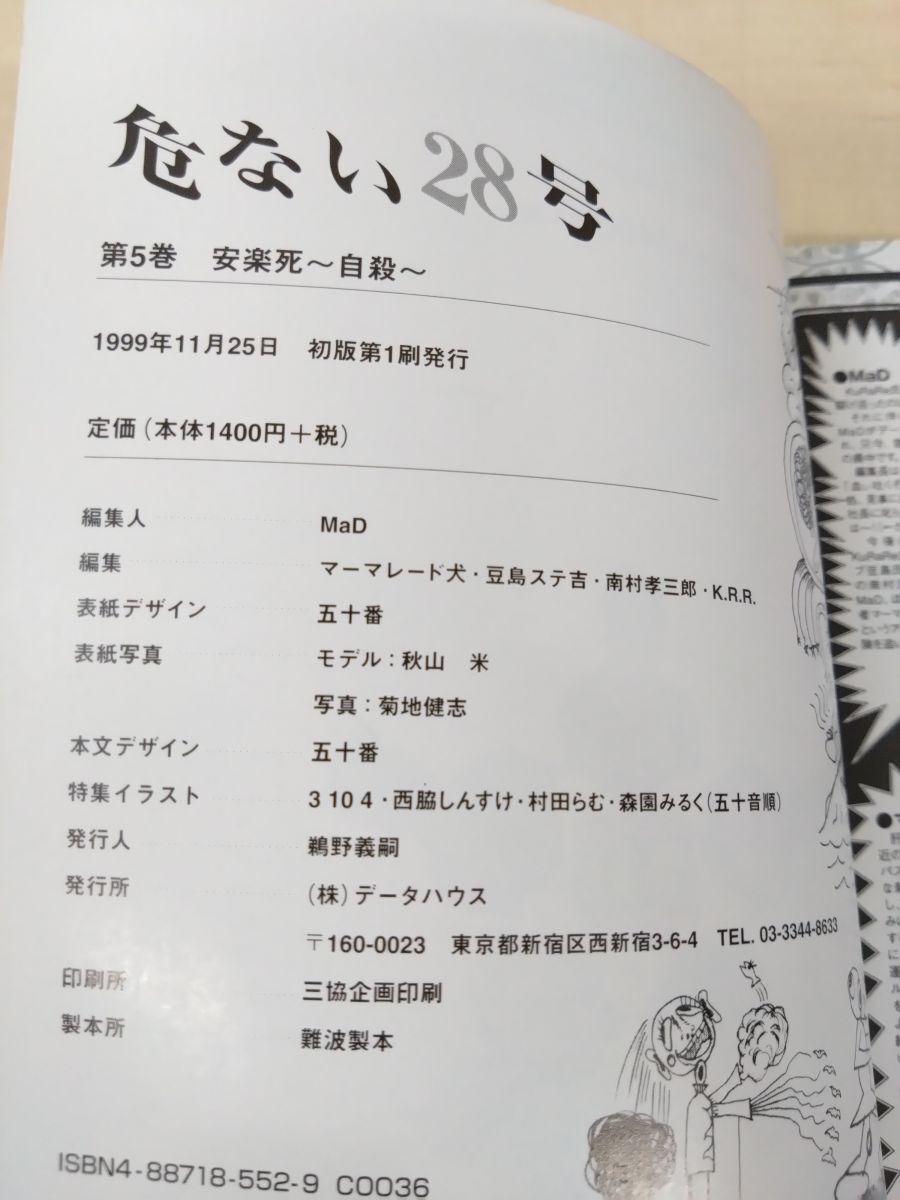 危ない28号
第5巻　安楽死～自殺～
1999年11月25日　初版第1刷発行
定価（本体1400円＋税）
編集人　MaD
編集　マーマレード犬・豆島ステ吉・南村孝三郎・K.R.R.
表紙デザイン　五十番
表紙写真　モデル：秋山　米
写真：菊地健志
本文デザイン　五十番
特集イラスト　3 10 4・西脇しんすけ・村田らむ・森園みるく（五十音順）
発行人　鵜野義嗣
発行所　（株）データハウス
〒160-0023　東京都新宿区西新宿3-6-4　TEL. 03-3344-8633
印刷所　三協企画印刷
製本所　難波製本
ISBN4-88718-552-9 C0036
●MaD